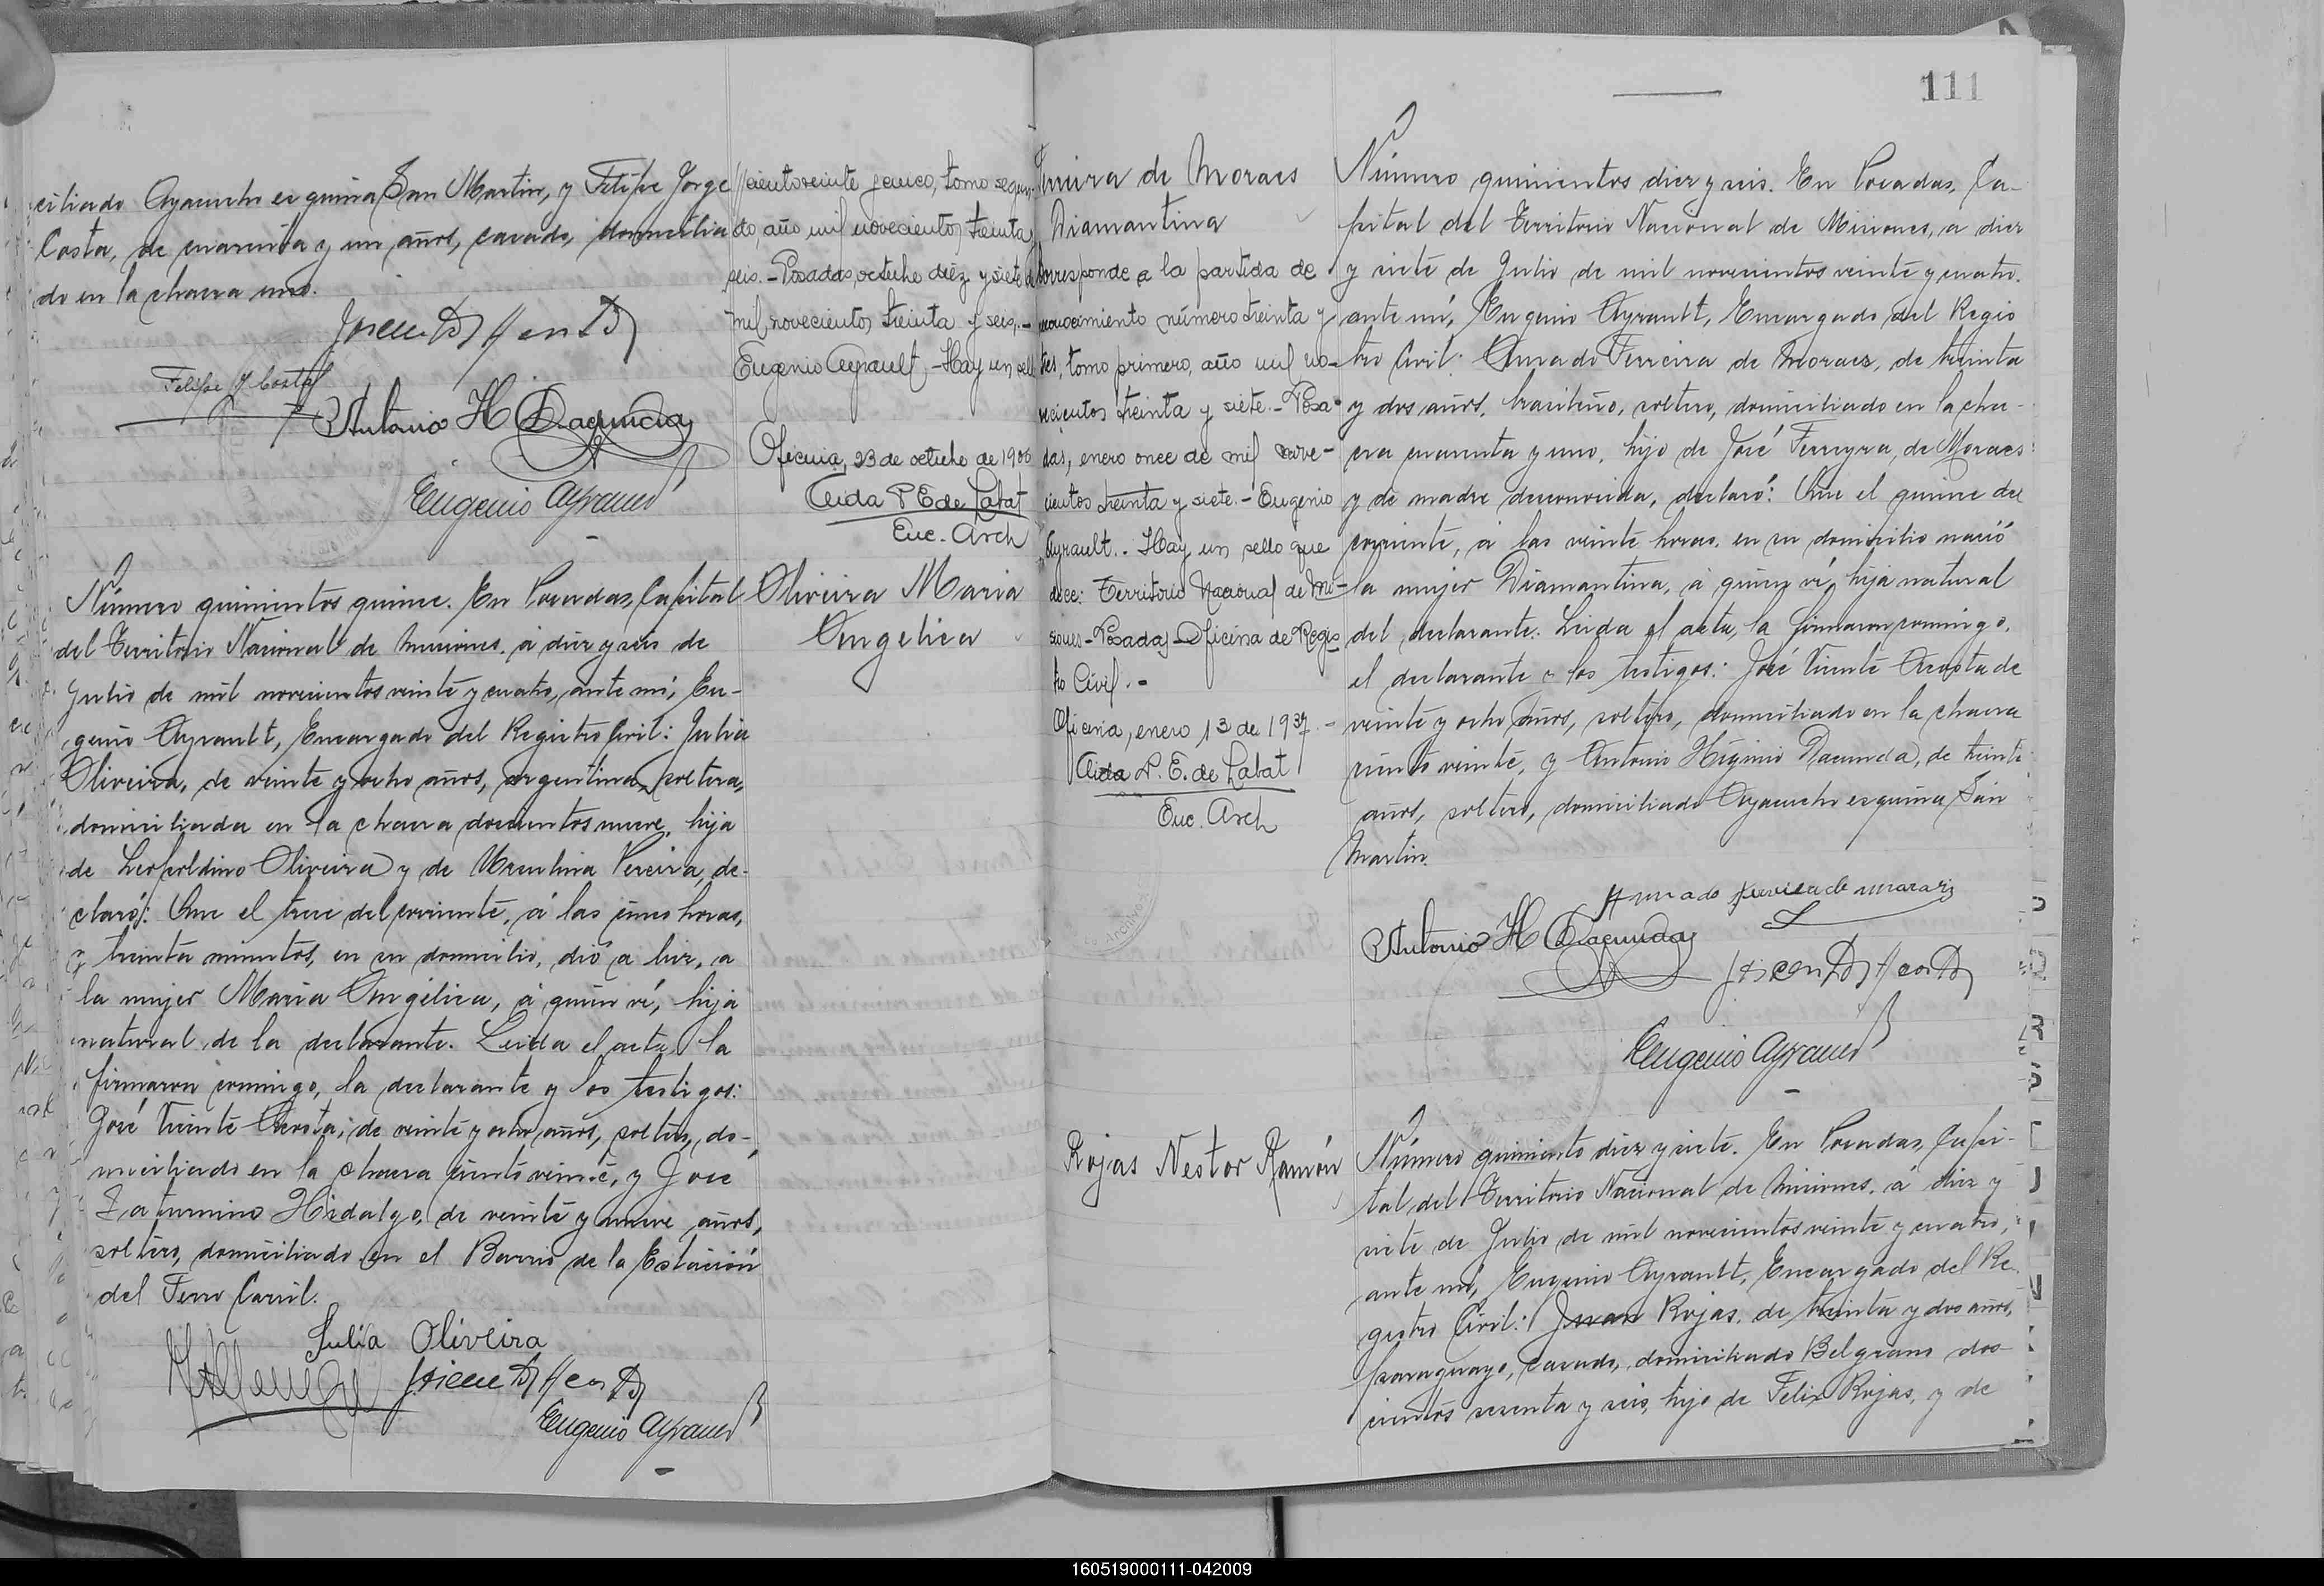 ciliado Ayacucho esquina San Martin, y Felipe Jorge
Costa, de cuarenta y un años, casado, domicilia
do en la chacra uno.
Felipe J Costa
Antonio H Dacunda
Eugenio Ayrault
ciento veinte y cinco, tomo segun-
do, año mil novecientos treinta
seis.- Posadas, octubre diéz y siete de
mil novecientos treinta y seis.-
Eugenio Ayrault.- Hay un sello
Oficina, 23 de octubre de 1936
Aida P E de Labat
Enc. Arch
Número quinientos quince. En Posadas, Capital
del Territorio Nacional de Misiones, á diez y seis de
Julio de mil novecientos veinte y cuatro, ante mí, Eu-
genio Ayrault, Encargado del Registro Civil: Julia
Oliveira, de veinte y ocho años, argentina, soltera,
domiciliada en la chacra doscientos nueve, hija
de Leopoldino Oliveira y de Pereira, de-
claró: Que el trece del corriente, á las cinco horas,
y treinta minutos, en su domicilio, dió a luz, a
la mujer Maria Angélica, á quien ví, hija
natural de la declarante. Leida el acta, la
firmaron conmigo, la declarante y los testigos:
José Vicente Acosta, de veinte y ocho años, soltero, do-
miciliado en la chacra ciento veinte, y José
Saturnino Hidalgo, de veinte y nueve años,
soltero, domiciliado en el Barrio de la Estación
del Ferro Carril.
Julia Oliveira
Eugenio Ayrault
Oliveira Maria
Angelica
111
de Moraes
Diamantina
Corresponde a la partida de
reconocimiento número treinta y
tres, tomo primero, año mil no-
vecientos treinta y siete.- Posa-
das, enero once de mil nove-
cientos treinta y siete.- Eugenio
Ayrault.. Hay un sello que
dice: Territorio Nacional de Mi-
siones- Posadas- Oficina de Regis
tro Civil.-
Oficina, enero 13 de 1937.-
Aida P. E. de Labat
Enc. Arch
Número quinientos diez y seis. En Posadas, Ca-
pital del Territorio Nacional de Misiones, a diez
y siete de Julio de mil novecientos veinte y cuatro.
ante mí, Eugenio Ayrault, Encargado del Regis
tro Civil: Amado Ferreira de Moraes, de treinta
y dos años, brasileño, soltero, domiciliado en la cha-
cra cuarenta y uno, hijo de José Ferreyra, de Moraes
y de madre desconocida, declaró: Que el quince del
corriente, á las veinte horas, en su domicilio nació
la mujer Diamantina, á quien ví, hija natural
del declarante. Leida el acta, la firmaron conmigo,
el declarante y los testigos: José Vicente Acosta de
veinte y ocho años, soltero, domiciliado en la chacra
ciento veinte, y Antonio Higinio Dacunda, de treinta
años, soltero, domiciliado Ayacucho esquina San
Martin.
Amado Ferreira de moraes
Antonio H Dacunda
Eugenio Ayrault
Rojas Nestor Ramón
Número quiniento diez y siete. En Posadas, Capi-
tal del Territorio Nacional de Misiones, á diez y
siete de Julio de mil novecientos veinte y cuatro,
ante mí, Eugenio Ayrault, Encargado del Re
gistro Civil: Juan Rojas, de treinta y dos años,
paraguayo, casado, domiciliado Belgrano dos-
cientos sesenta y seis, hijo de Felix Rojas, y de
160519000111-042009